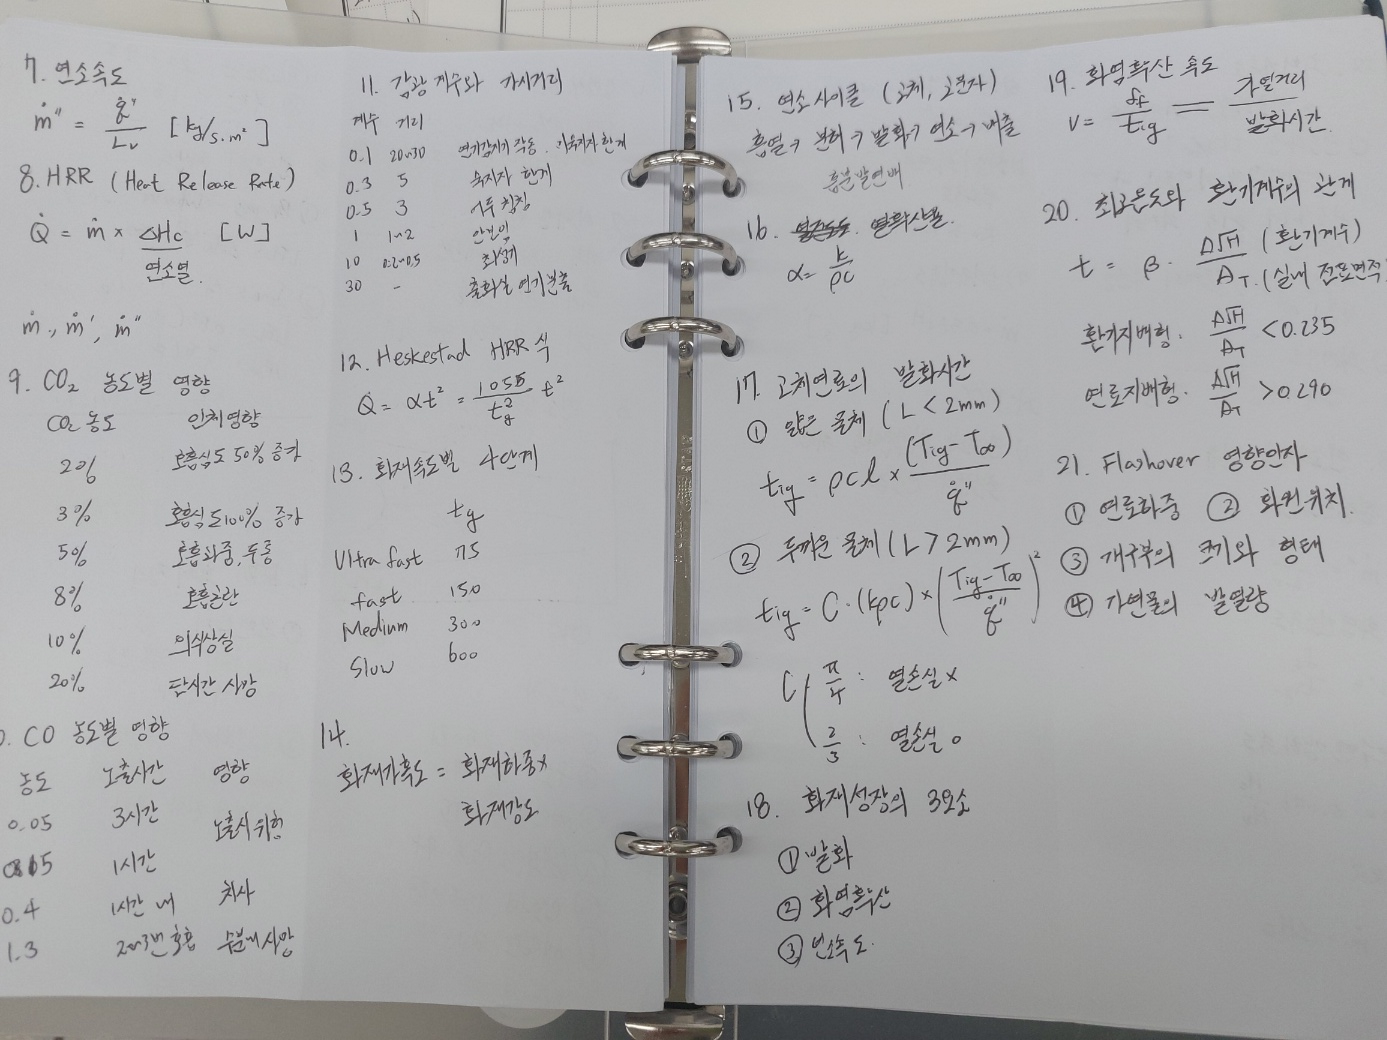 7. 연소속도
ṁ″ = q̇″ / Lv [kg/s.m²]
8. HRR (Heat Release Rate)
Q̇ = ṁ × ΔHc [W]
연소열.
ṁ, ṁ′, ṁ″
9. CO₂ 농도별 영향
CO₂ 농도 인체영향
2% 호흡속도 50% 증가
3% 호흡속도 100% 증가
5% 호흡과중, 두통
8% 호흡곤란
10% 의식상실
20% 단시간 사망
0. CO 농도별 영향
농도 노출시간 영향
0.05 3시간 노출시 위험
1시간
0.4 1시간 내 치사
1.3 2~3번 호흡 수분내 사망
11. 감광계수와 가시거리
계수 거리
0.1 20~30 연기감지기 작동. 미숙지자 한계
0.3 5 숙지자 한계
0.5 3 어두침침
1 1~2 안보임
10 0.2~0.5 최성기
30 - 출화실 연기분출
12. Heskestad HRR 식
Q̇ = αt² = 1055 / tg² t²
13. 화재속도별 4단계
tg
Ultra fast 75
fast 150
Medium 300
Slow 600
14.
화재가혹도 = 화재하중×
화재강도
15. 연소사이클 (고체, 고분자)
흡열→ 분해→ 발화→ 연소→ 배출
흡분발연배
16. 열확산률.
α = k / ρc
17. 고체연료의 발화시간
① 얇은 물체 (L < 2mm)
tig = ρcl × (Tig - T∞) / q̇″
② 두꺼운 물체 (L > 2mm)
tig = C·(kρc) × ((Tig - T∞) / q̇″)²
C π/4 : 열손실 x
2/3 : 열손실 o
18. 화재성장의 3요소
① 발화
② 화염확산
③ 연소속도.
19. 화염확산 속도
V = δf / tig = 가열거리 / 발화시간
20. 최고온도와 환기계수의 관계
t = β · A√H (환기계수) / AT. (실내 전표면적)
환기지배형. A√H / AT < 0.235
연료지배형. A√H / AT > 0.290
21. Flashover 영향인자
① 연료하중 ② 화원위치.
③ 개구부의 크기와 형태
④ 가연물의 발열량